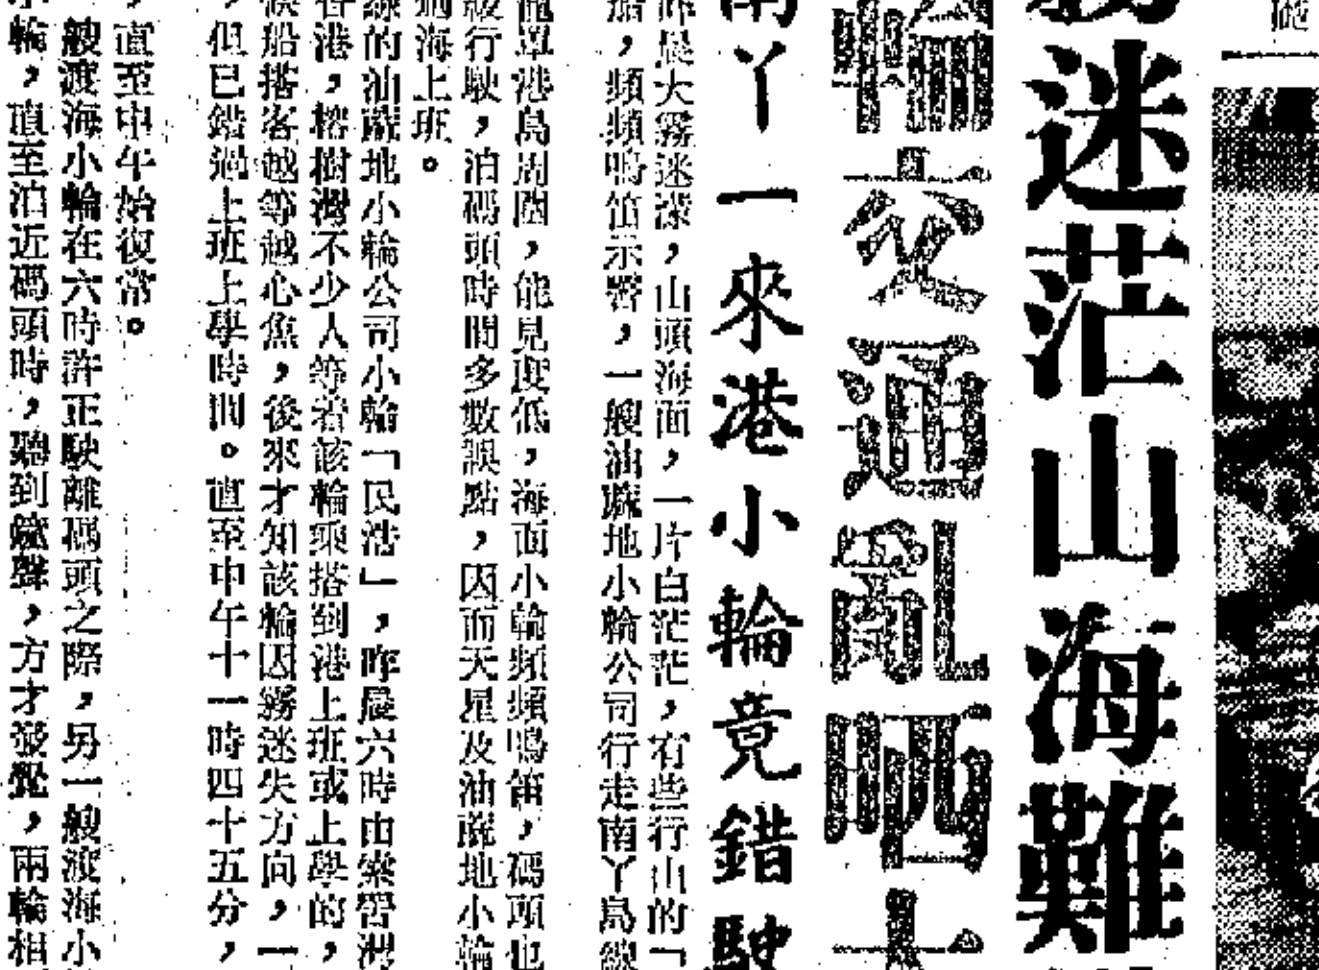 迷茫山海難
交通亂晒大
丫一來港小輪竟錯駛
昨晨大霧迷濛，山頭海面，一片白茫茫，有些行山的「
，頻頻鳴笛示警，一艘油蔴地小輪公司行走南丫島線
籠罩港島周圍，能見度低，海面小輪頻頻鳴笛，碼頭也
級行駛，泊碼頭時間多數誤點，因而天星及油蔴地小輪
海上班。
線的油蔴地小輪公司小輪「民浩」，昨晨六時由索罟灣
香港，榕樹灣不少人等着該輪乘搭到港上班或上學的，
船搭客越等越心焦，後來才知該輪因霧迷失方向，一
但已錯過上班上學時間。直至中午十一時四十五分，
，直至中午始復常。
艘渡海小輪在六時許正駛離碼頭之際，另一艘渡海小
輪，直至泊近碼頭時，聽到聲，方才發覺，兩輪相